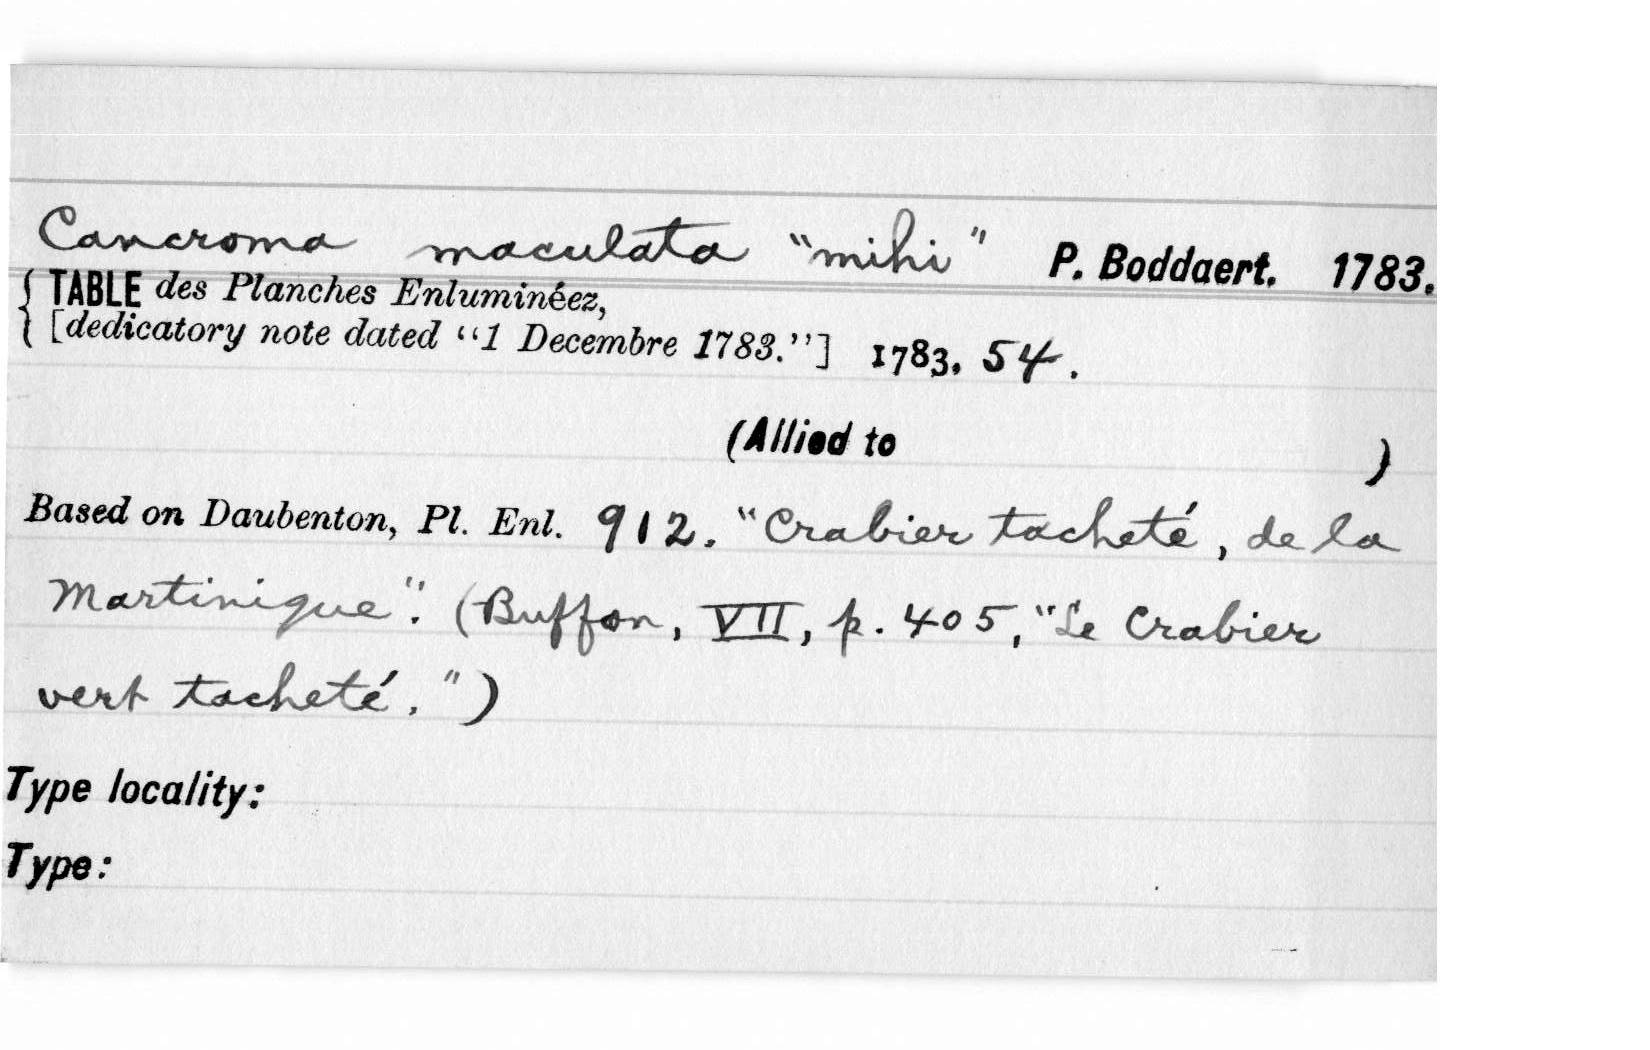 Cancroma maculata "mihi" P. Boddaert. 1783.
{ TABLE des Planches Enluminéez,
{ [dedicatory note dated "1 Decembre 1783."] 1783, 54.
(Allied to )
Based on Daubenton, Pl. Enl. 912. "Crabier tacheté, de la
Martinique". (Buffon, VII, p. 405, "Le Crabier
vert tacheté.")
Type locality:
Type: